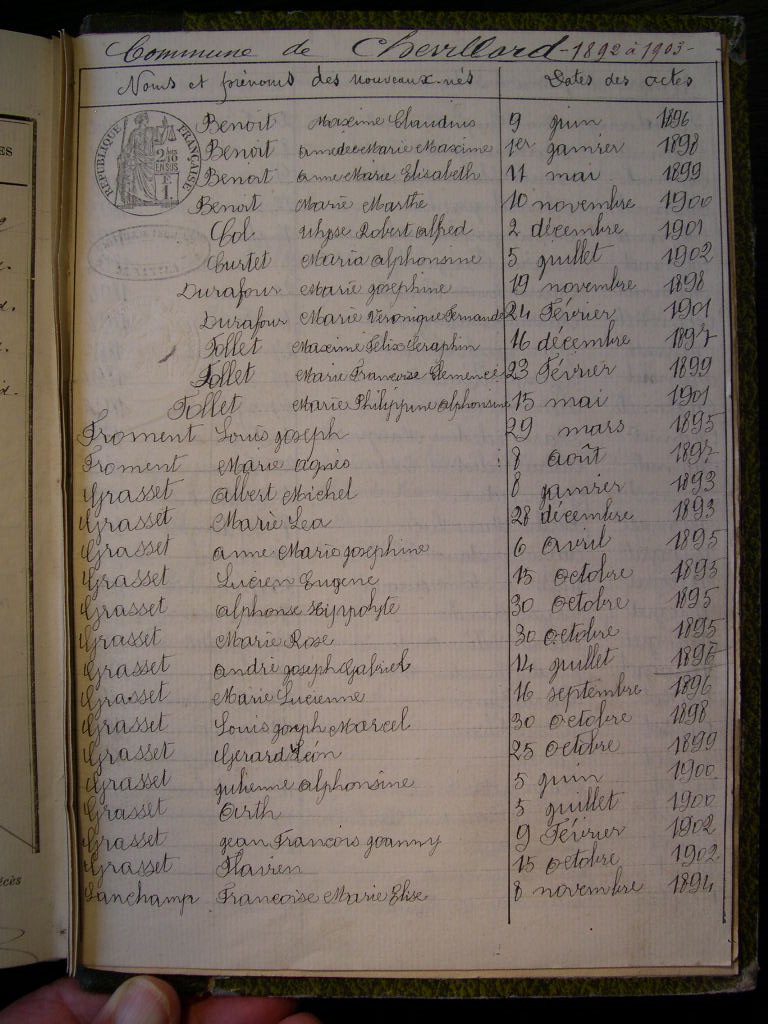 Commune de Chevillard - 1892 à 1903 -
Noms et prénoms des nouveaux-nés Dates des actes
RÉPUBLIQUE FRANÇAISE
Benoit Maxime Claudius 9 juin 1896
Benoit Amedee Marie Maxime 1er janvier 1898
Benoit Anne Marie Elisabeth 11 mai 1899
Benoit Marie Marthe 10 novembre 1900
Col Ulysse Robert Alfred 2 décembre 1901
Curtet Maria Alphonsine 5 juillet 1902
Durafour Marie Josephine 19 novembre 1898
Durafour Marie Véronique Fernande 24 Février 1901
Follet Maxime Félix Séraphin 16 décembre 1897
Follet Marie Françoise Clemence 23 Février 1899
Follet Marie Philippine Alphonsine 15 mai 1901
Froment Louis Joseph 29 mars 1895
Froment Marie Agnès 8 août 1897
Grasset Albert Michel 8 janvier 1893
Grasset Marie Lea 28 décembre 1893
Grasset Anne Marie Josephine 6 Avril 1895
Grasset Lucien Eugene 15 octobre 1895
Grasset Alphonse Hippolyte 30 octobre 1895
Grasset Marie Rose 30 octobre 1895
Grasset André Joseph Gabriel 14 juillet 1896
Grasset Marie Lucienne 16 septembre 1896
Grasset Louis Joseph Marcel 30 octobre 1898
Grasset Gerard Léon 25 octobre 1899
Grasset Julienne Alphonsine 5 juin 1900
Grasset Orth 5 juillet 1900
Grasset Jean François Joanny 9 Février 1902
Grasset Flavien 15 octobre 1902
Lanchamp Françoise Marie Elise 8 novembre 1894